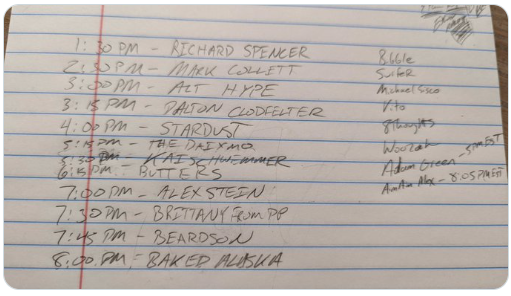 1:30 PM - RICHARD SPENCER
2:30 PM - MARK COLLETT
3:00 PM - ALT HYPE
3:15 PM - DALTON CLODFELTER
4:00 PM - STARDUST
5:15 PM - THE DAIXMO
5:30 PM - KAI SCHWEMMER
6:15 PM - BUTTERS
7:00 PM - ALEX STEIN
7:30 PM - BRITTANY FROM
7:45 PM - BEARDSON
8:00 PM - BAKED ALASKA
Bibble
Surfer
Michael
Vito
8thoughts
Woozuh
Adam Green - 5PM EST
Alex - 8:05 PM EST